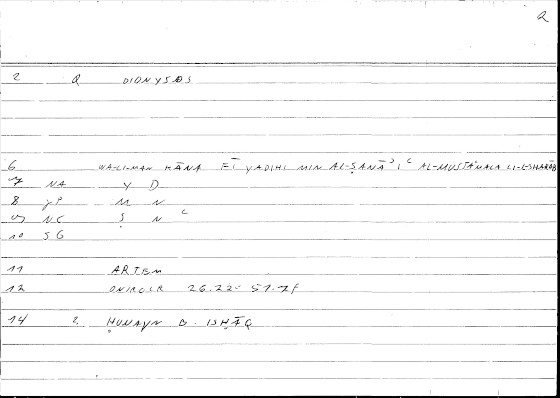 Q
2 Q DIONYSOS
6 WA-LI-MAN KĀNA FĪ YADIHI MIN AL-ṢANĀʾIʿ AL-MUSTAʿMALA LI-L-SHARĀB
7 NA Y D
8 gP M N
9 NG Ṣ N ʿ
10 SG
11 ARTEM
12 ONIROCR 26.22- 51.7f
14 2. ḤUNAYN B. ISḤĀQ